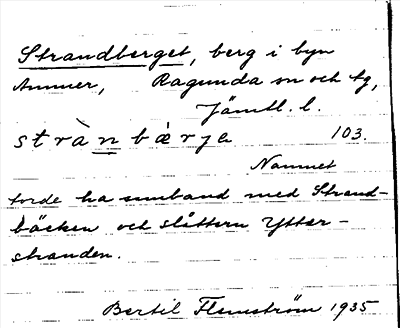 Strandberget, berg i byn
Ammer, Ragunda sn och tg,
Jämtl. l.
strànbǽrje 103.
Namnet
torde ha samband med Strand-
bäcken och slåttern Ytter-
stranden.
Bertil Flemström 1935